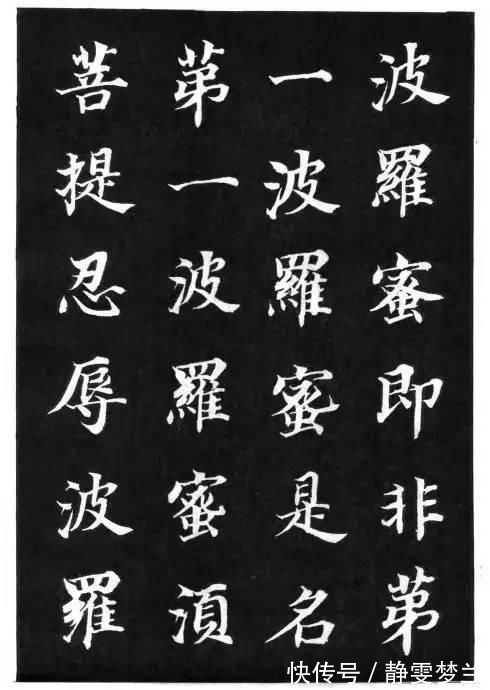 波羅蜜即非苐
一波羅蜜是名
苐一波羅蜜湏
菩提忍辱波羅
快传号／静雯梦兰